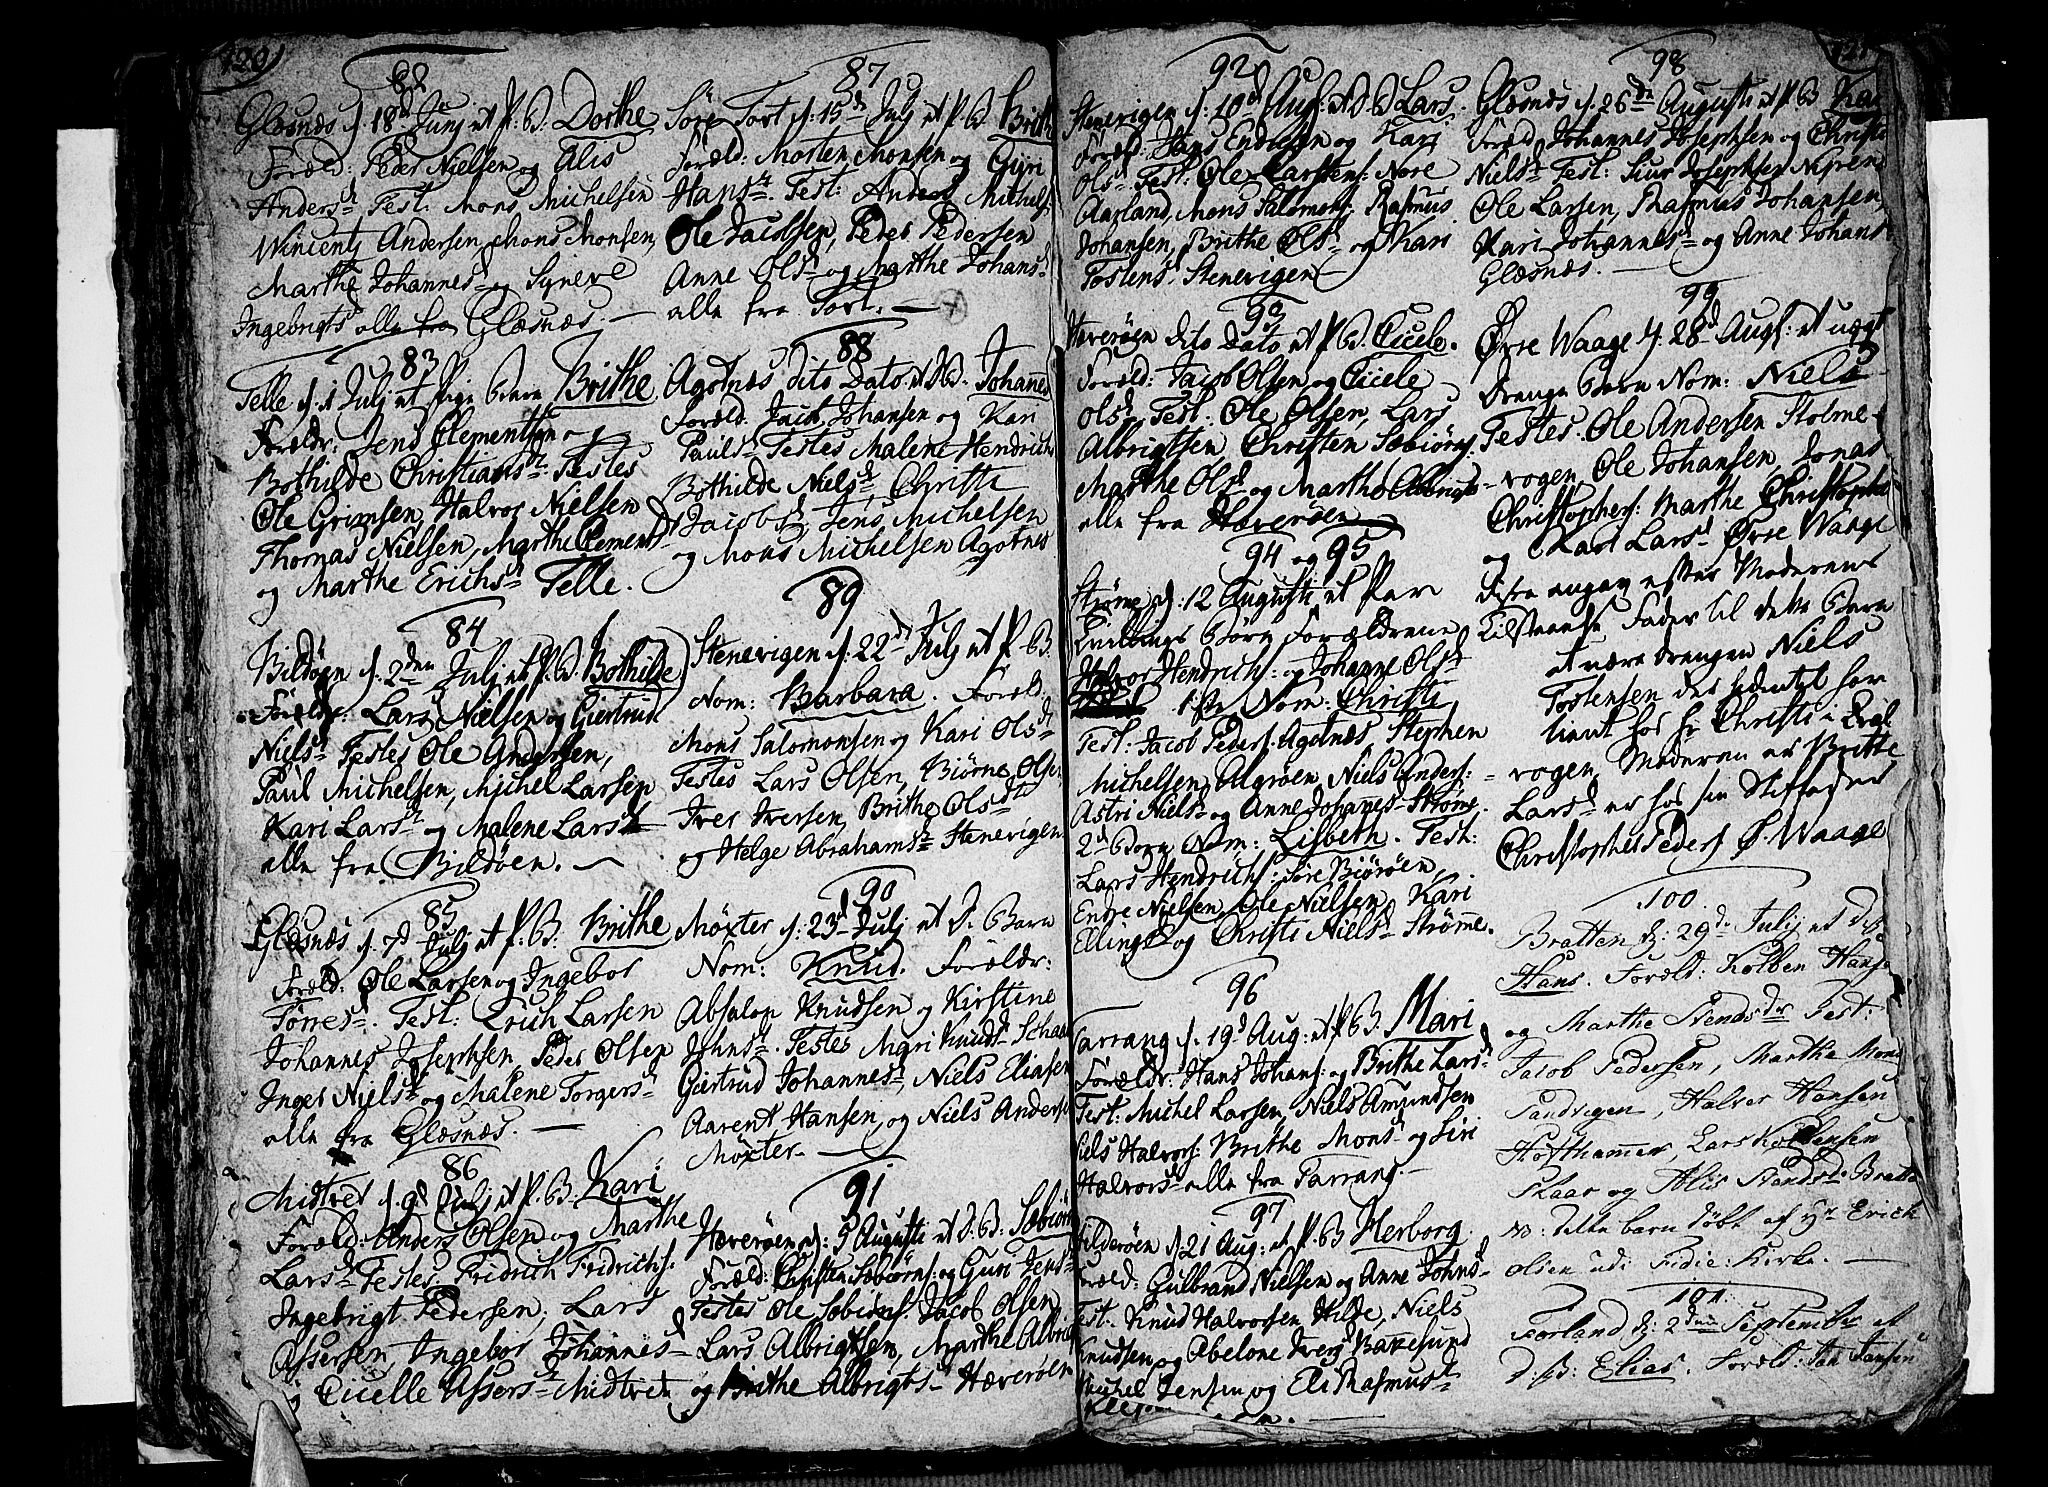 120
82
Glæsnæs d. 18d Junj et P. B. Dorthe
Foræld: Peder Nielsen og Alis
Andersd Test. Mons Michelsen
Wincentz Andersen, Mons Monsen,
Marthe Johannesd og Syneve
Ingebrigtsd alle fra Glæsnæs.
83
Telle d. 1 Julj et Pige Barn Brithe
Forældr: Jens Clementsen og
Bothilde Christiansdt Testes
Ole Grimsen, Halvor Nielsen
Thomas Nielsen, Marthe Clementsd
og Marthe Erichsd Telle.
84
Bildøen d. 2den Julj et P. B. Bothilde
Forældr: Lars Nielsen og Giertrud
Nielsd Testes Ole Andersen,
Paul Michelsen, Michel Larsen
Kari Larsdt og Malene Larsdt
alle fra Bildøen.
85
Glæsnæs d. 7d Julj et P. B: Brithe
Foræld: Ole Larsen og Ingebor
Torresd. Test: Erich Larsen
Johannes Josephsen, Peder Olsen
Inger Nielsdt og Malene Torgersd
alle fra Glæsnæs.
86
Midtvet d. 9d Julj et P. B. Kari
Foræld: Anders Olsen og Marthe
Larsd Testes. Fridrich Fridrichs.
Ingebrigt Pedersen, Lars
Assersen, Ingebor Johannesd
og Cicelle Assersdt Midtvet
87
Søre Tort d. 15d Julj et P. B. Brith
Foræld: Mosten Monsen og Gyri
Hansdt. Test: Anders Michels.
Ole Jacobsen, Peder Pedersen
Anne Olsd og Marthe Johansd
alle fra Tort.
88
Agotnæs dito Dato et D. B. Johannes
Foræld. Jacob Johansen og Kari
Paulsd Testes Malene Hendrichs
Bothilde Nielsd, Christi
Jacobsd, Jens Michelsen
og Mons Michelsen Agotnæs
89
Stenevigen d. 22d Julj et P. B.
Nom: Barbara. Foræld:
Mons Salomonsen og Kari Olsdt
Testes Lars Olsen, Biørne Olsen
Iver Iversen, Brithe Olsdt
og Helge Abrahamsdt Stenevigen
90
Møxter d. 23d Julj et D. Barn
Nom: Knud. Forældr:
Absalon Knudsen og Kirstine
Johnsd. Testes Mari Knudsd
Giertrud Johannesd, Niels Eliasen
Aarent Hansen og Niels Anders.
Møxter.
91
Hæverøen d: 5 Augusti et D. B: Sæbiørn
Foræld: Christen Sæbiørns: og Guri Jensd
Testes Ole Sæbiørns. Jacob Olsen
Lars Albrigtsen, Marthe Albrigtsd
og Brithe Albrigtsd Hæverøen
92
Stenevigen d. 10d Aug: et D. B Lars.
Foræld: Hans Endresen og Kari
Olsd Test: Ole Karstens: Nore
Aarland, Mons Salomons: Rasmus
Johansen, Brithe Olsd og Kari
Tostensd Stenevigen
93
Hæverøen dito Dato et P. B. Cicele.
Foræld: Jacob Olsen og Cicele
Olsd Test: Ole Olsen, Lars
Albrigtsen, Christen Sæbiørns.
Marthe Olsd og Marthe Albrigtsd
alle fra Hæverøen
94 og 95
Strømme d: 12 Augusti et Par
Tvillings Børn Forældrene
Halvor Hendrichs: og Johanne Olsdt
1ste Nom: Christi
Test: Jacob Peders. Agotnæs Stephen
Michelsen Algrøen, Niels Anders:
Astri Nielsd og Anne Johannesd Strømme.
2d Barn Nom: Lisbeth. Test:
Lars Hendrichs: Søre Biørøen,
Endre Nielsen, Ole Nielsen, Kari
Ellingsd og Christi Nielsd Strømme.
96
Tarrang d. 19d Aug: et P. B. Mari
Forældr: Hans Johans: og Brithe Larsd
Test: Michel Larsen, Niels Amundsen
Niels Halvors: Brithe Monsd og Siri
Halvorsd alle fra Tarrang.
97
Hilderøen d. 21 Aug: et P. B Herborg.
Foræld: Gulbrand Nielsen og Anne Johnsd
Test. Knud Halvorsen Hilde, Niels
Knudsen og Abelone Iversd Bakkesund
Michel Jensen og Eli Rasmusdt
98
Glæsnæs d. 26de Augusti et P. B Kari
Foræld Johannes Josephsen og Christi
Nielsd Test: Siur Josephsen
Ole Larsen, Rasmus Johansen,
Kari Johannesd og Anne Johans
Glæsnæs.
99
Øvre Waage d. 28d Aug: et uægt
Drenge Barn Nom: Niels
Testes. Ole Andersen Stolme-
vogen, Ole Johansen, Jonas
Christophers: Marthe Christophe
og Kari Larsd Øvre Waage
Disse angav efter Moderens
Tilstaaelse Fader til dette Barn
at være drengen Niels
Tostensen der
tient hos Christi i Qval-
vogen, Moderen er Britte
Larsd er hos sin Stiffader
Christopher Peders Ø. Waage
100.
Bratten d: 29de Julij et D. B.
Hans. Foræld: Kolben Hanse
og Marthe Stendsdr Test:
Jacob Pedersen, Martha Mons
Sandvigen, Halver Hansen
Hofthammer, Lars Kolbensen
Skaar og Alis Stendsdr Bratte
NB: dette barn døbt af Hr Erich
Olsen udi Fidie Kirke.
101.
Forland d: 2den Septembr et
D. B: Elias. Foræld: Jan Jansen